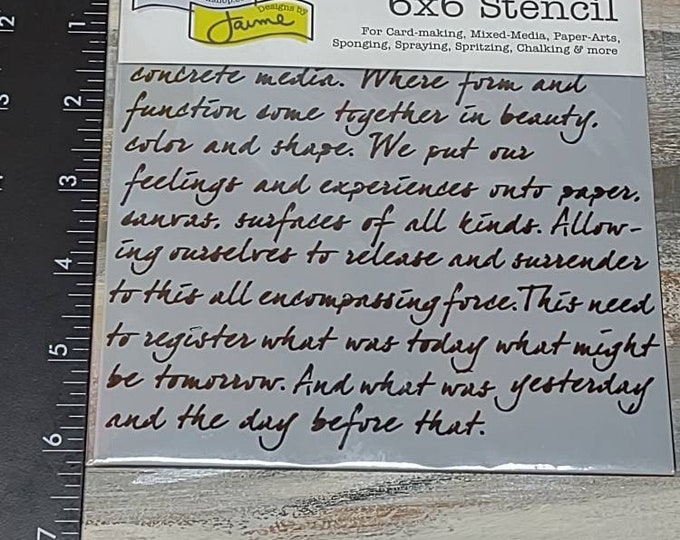 Designs by
Jaime
6x6 Stencil
For Card-making, Mixed-Media, Paper-Arts,
Sponging, Spraying, Spritzing, Chalking & more
concrete media. Where form and
function come together in beauty,
color and shape. We put our
feelings and experiences onto paper,
canvas, surfaces of all kinds. Allow-
ing ourselves to release and surrender
to this all encompassing force. This need
to register what was today what might
be tomorrow. And what was yesterday
and the day before that.
2
3
2
3
4
5
6
7